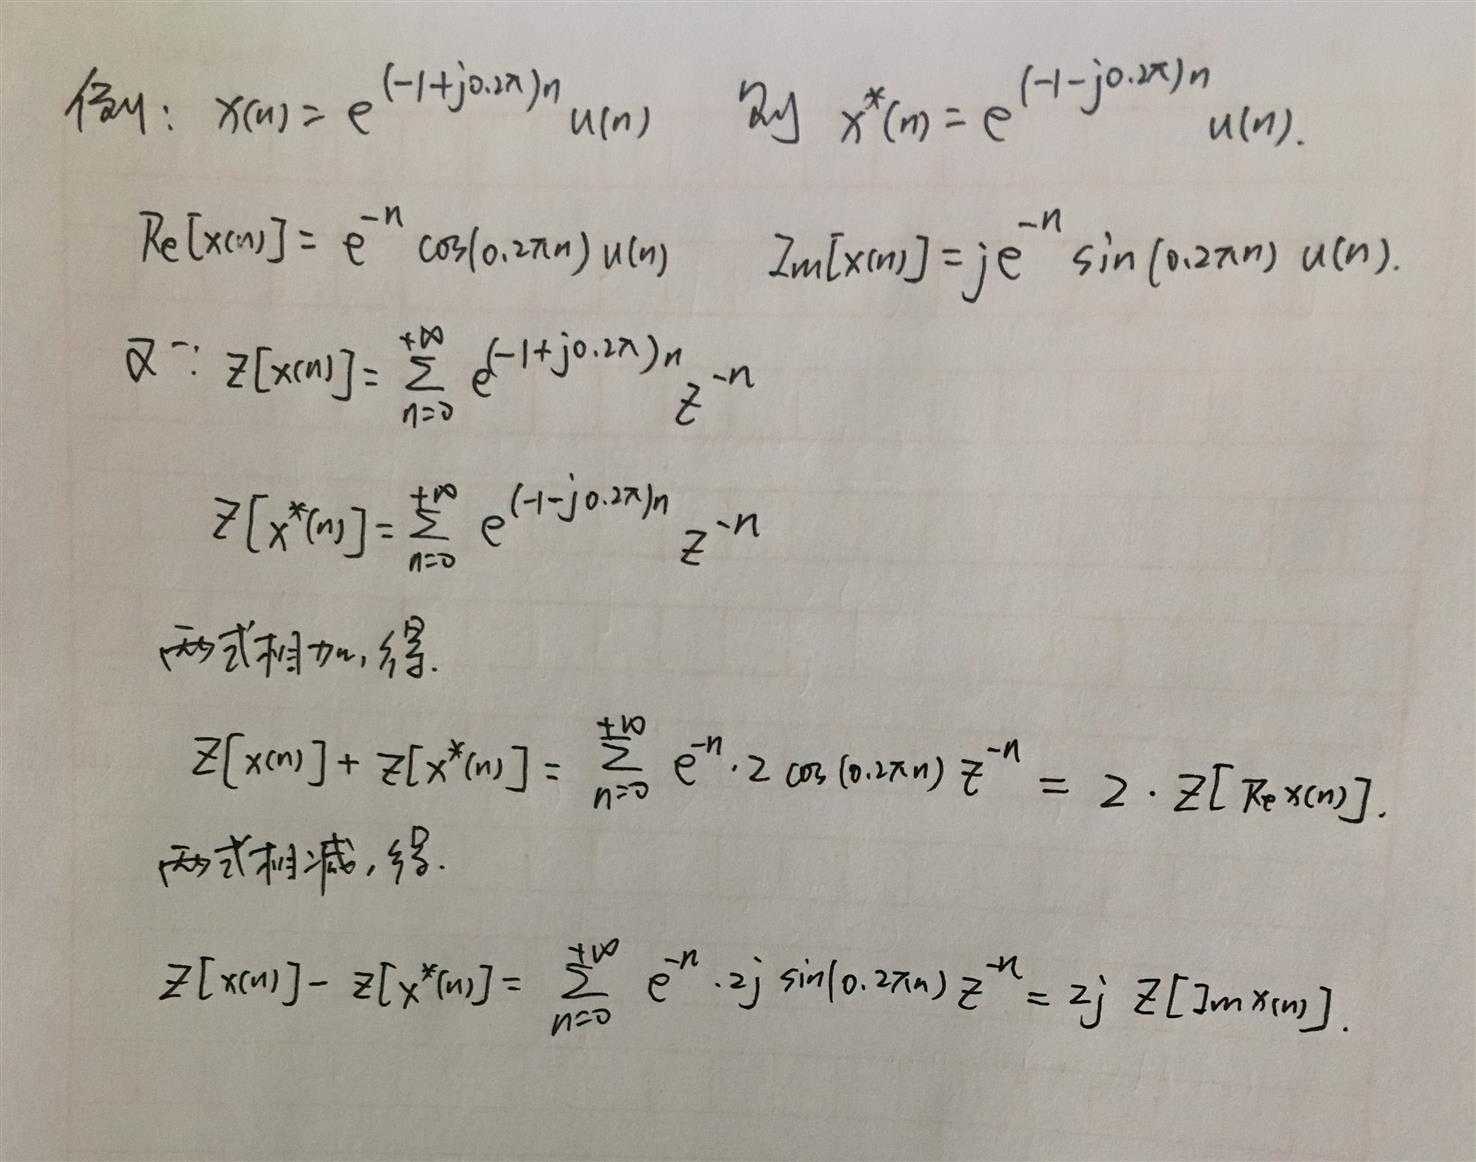 例: x(n) = e^{(-1+j0.2π)n} u(n) 则 x*(n) = e^{(-1-j0.2π)n} u(n).
Re[x(n)] = e^{-n} cos(0.2πn) u(n) Im[x(n)] = j e^{-n} sin(0.2πn) u(n).
又∵ Z[x(n)] = ∑_{n=0}^{+∞} e^{(-1+j0.2π)n} z^{-n}
Z[x*(n)] = ∑_{n=0}^{+∞} e^{(-1-j0.2π)n} z^{-n}
两式相加,得.
Z[x(n)] + Z[x*(n)] = ∑_{n=0}^{+∞} e^{-n}·2 cos(0.2πn) z^{-n} = 2·Z[Re x(n)].
两式相减,得.
Z[x(n)] - Z[x*(n)] = ∑_{n=0}^{+∞} e^{-n}·2j sin(0.2πn) z^{-n} = 2j Z[Im x(n)].